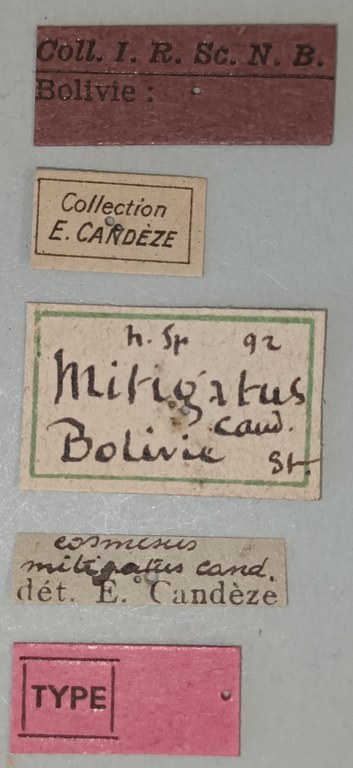 Coll. I. R. Sc. N. B.
Bolivie :
Collection
E. CANDÈZE
n. Sp 92
Mitigatus
Cand.
Bolivie St.
cosmesus
mitigatus cand.
dét. E. Candèze
TYPE